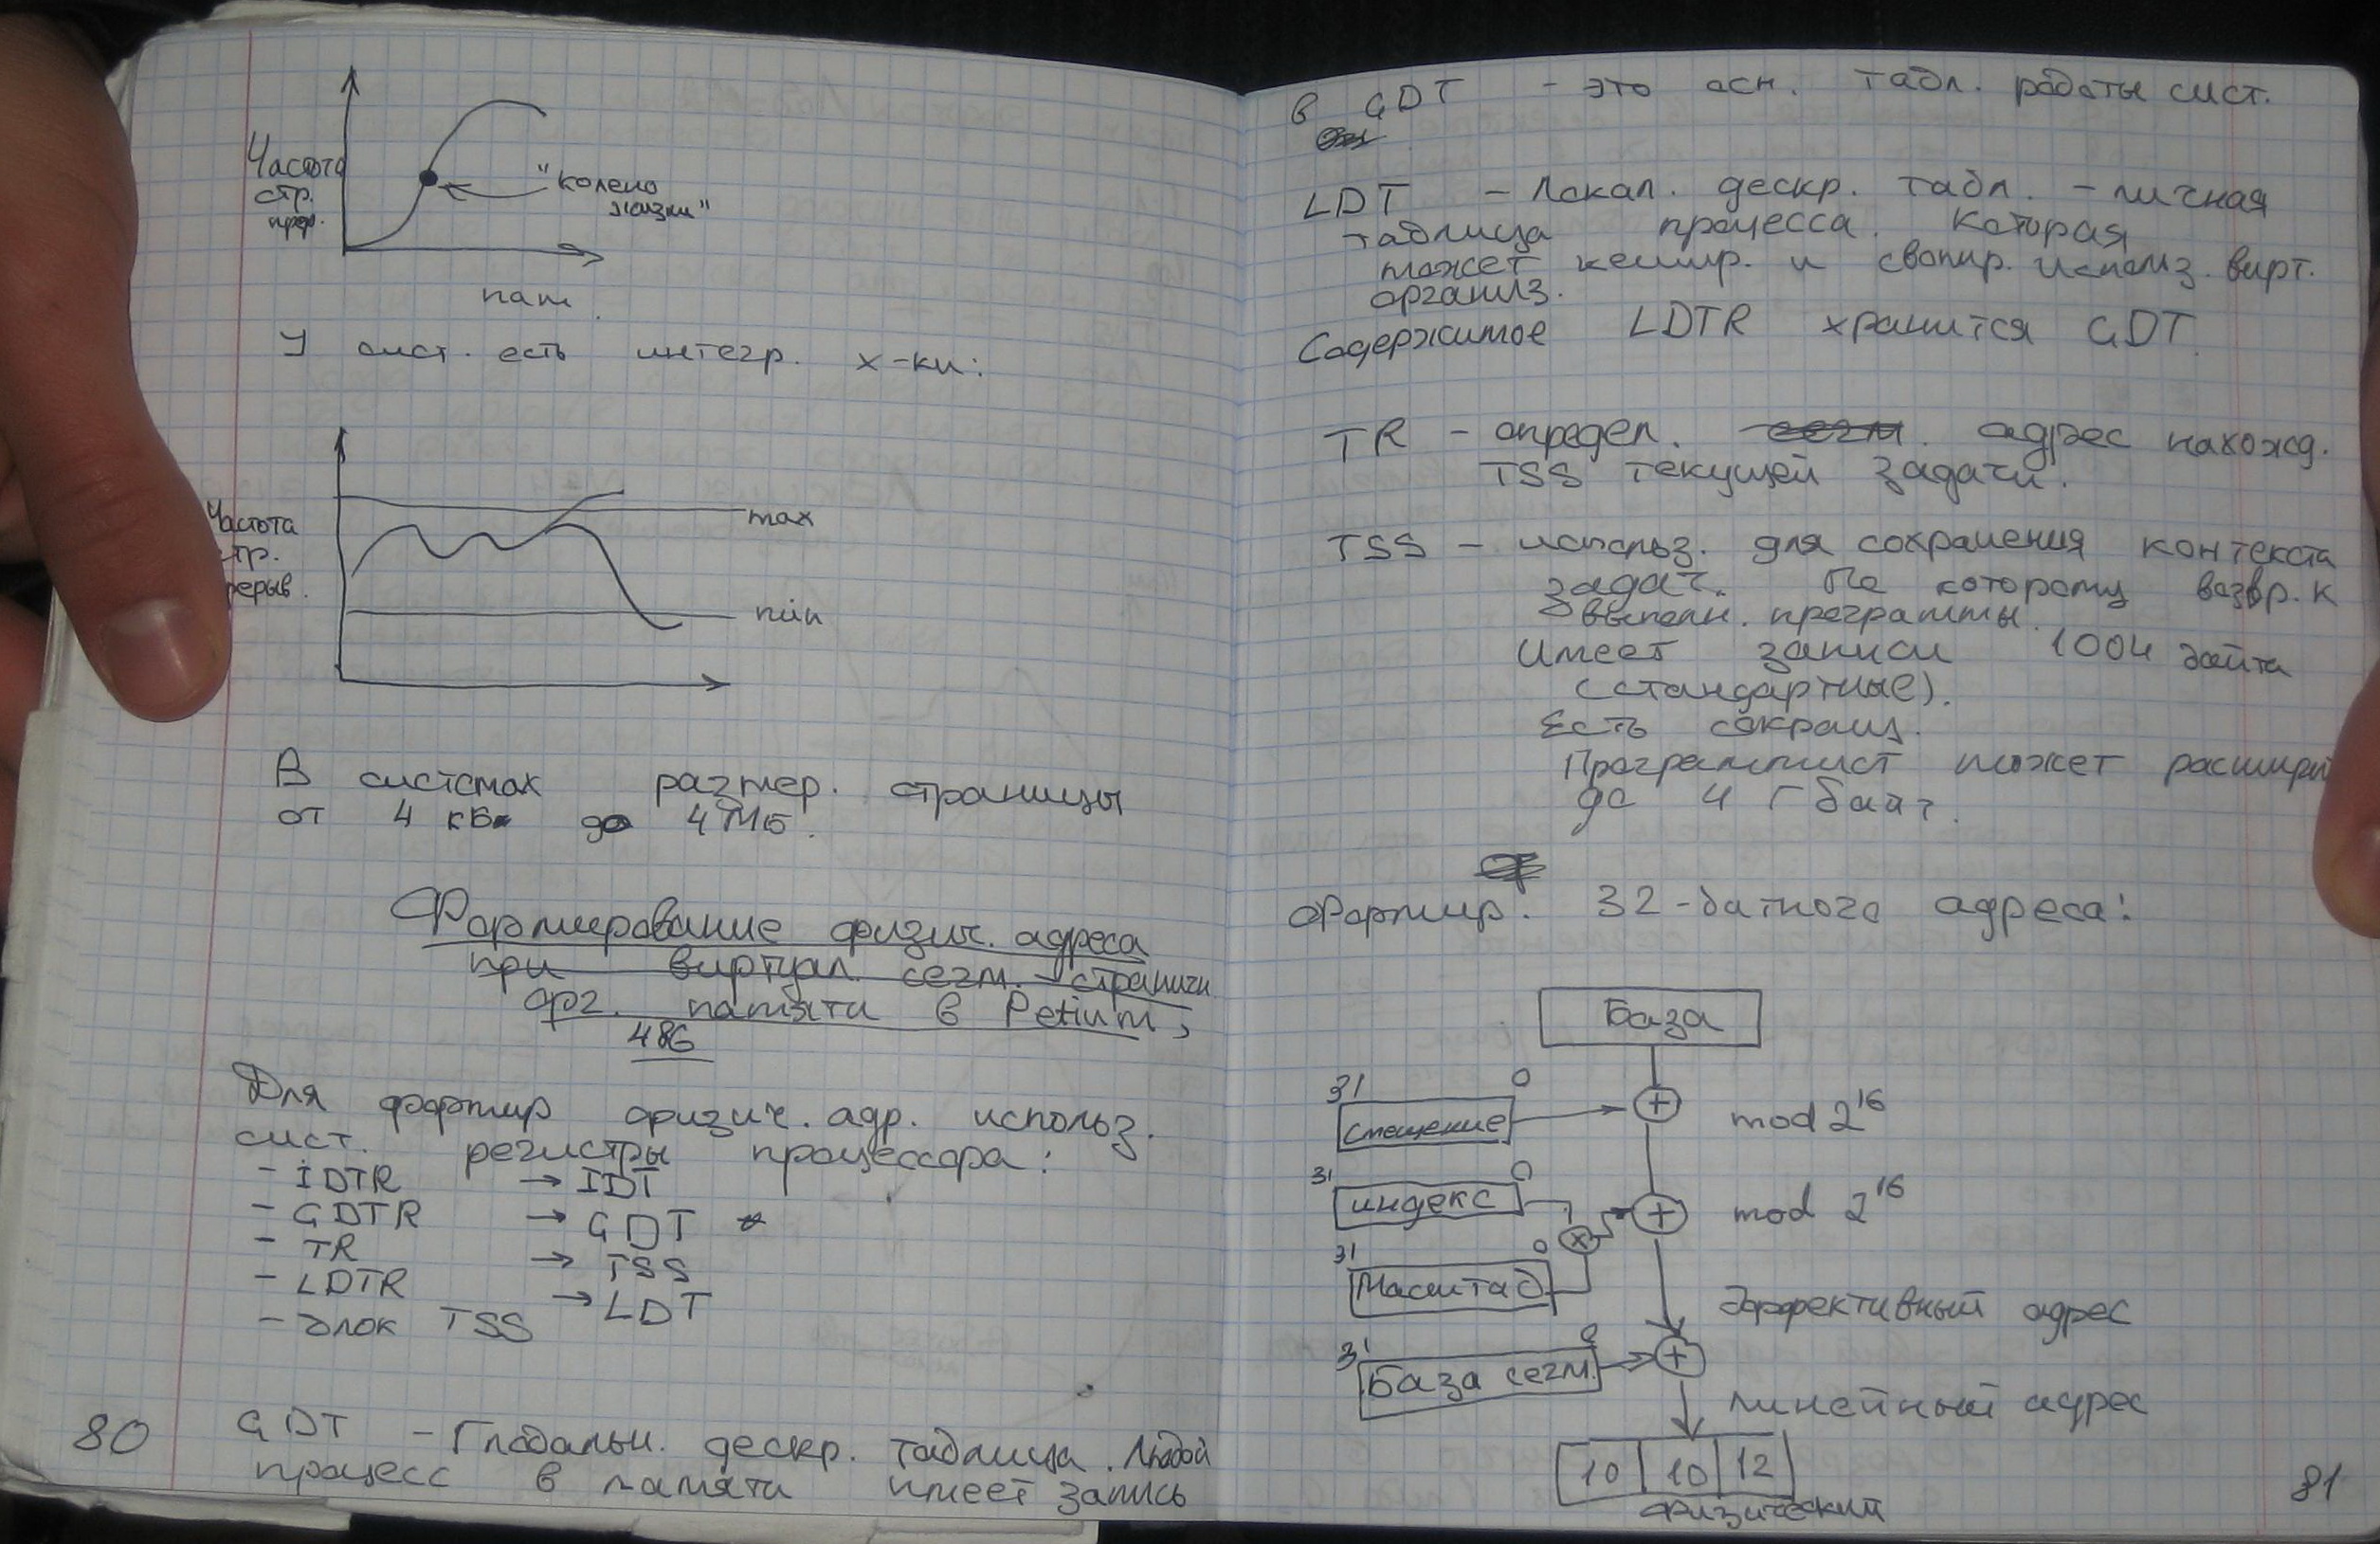 Частота
стр.
прер.
"колено
жизни"
пам.
У сист. есть интегр. х-ки:
Частота
стр.
рерыв.
max
min
В системах размер. страницы
от 4 кБ до 4 МБ.
Формирование физич. адреса
при виртуал. сегм. - страничн
орг. памяти в Petium,
486
Для формир физич. адр. использ.
сист. регистры процессора:
- IDTR → IDT
- GDTR → GDT *
- TR → TSS
- LDTR → LDT
- блок TSS
GDT - Глобальн. дескр. таблица. Любой
процесс в памяти имеет запись
80
в GDT - это осн. табл. работы сист.
LDT - Локал. дескр. табл. - личная
таблица процесса. которая
может кешир. и свопир. использ. вирт.
организ.
Содержимое LDTR хранится GDT.
TR - определ. сегм. адрес нахожд.
TSS текущей задачи.
TSS - использ. для сохранения контекста
задач. По которому возвр. к
выполн. программы.
Имеет записи 1004 байта
(стандартные).
Есть сокращ.
Программист может расширит
до 4 Гбайт.
Формир. 32-битного адреса:
База
31 0
смещение
mod 2^16
31 0
индекс
mod 2^16
31 0
Масштаб
Эффективный адрес
31 0
База сегм.
линейный адрес
10 10 12
Физический
81